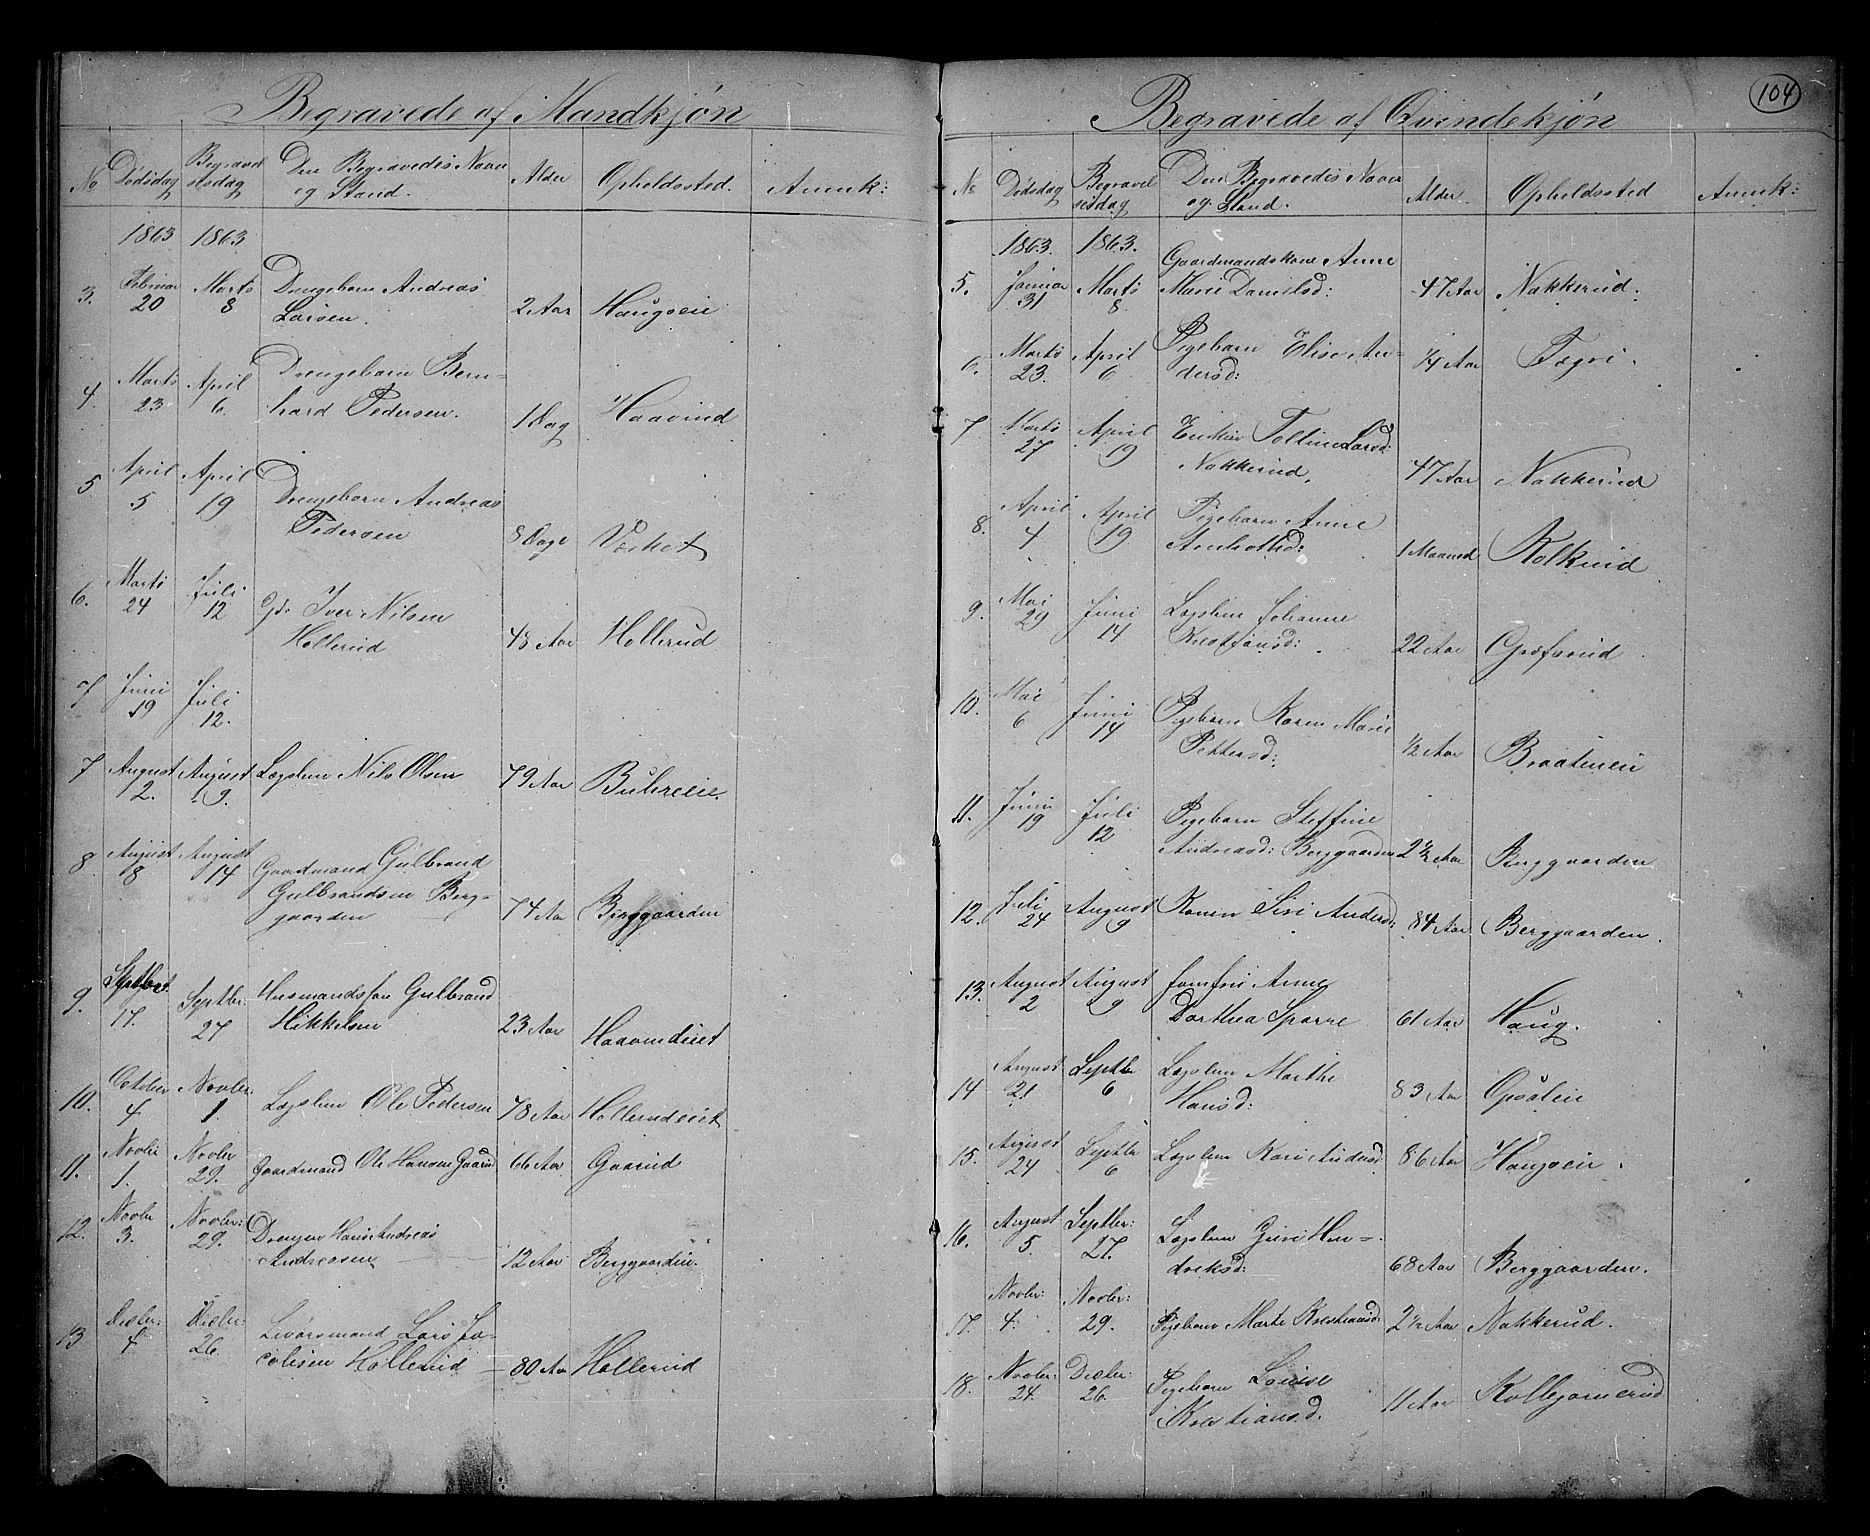 Begravede af Mandkjøn
No Dødsdag Begravelsesdag Den Begravedes Navn og Stand. Alder Opholdssted. Anmk:
1863 1863
3. Februar 20 Marts 8 Drengebarn Andreas Larsen. 2 Aar Haugseie
4. Marts 23 April 6. Drengebarn Bernhard Pedersen. 1 Dag Haavrud
5 April 5 April 19 Drengebarn Andreas Pedersen 8 Dage Værket
6. Marts 24 Juli 12 Gd. Iver Nilsen Hollerud 48 Aar Hollerud
7 Juni 19 Juli 12.
7 August 2. August 9. Lægslem Nils Olsen 79 Aar
8. August 8 August 14 Gaardmand Gulbrand Gulbrandsen Berggaarden 74 Aar Berggaarden
9. Septbr. 17. Septbr: 27 Gulbrand Mikkelsen 23 Aar
10. October 4 Novbr: 1. Lægslem Ole Pedersen 78 Aar
11. Novbr 1. Novbr 29. Gaardmand Ole Hansen Gaarud 66 Aar Gaarud
12. Novbr 3. Novbr: 29. Drengen Hans Andreas Andreasen 12 Aar Berggaarden.
13 Decbr: 4 Decbr: 26. Lars Jacobsen Hollerud 80 Aar Hollerud
104
Begravede af Qvindekjøn
No Dødsdag Begravelsesdag Den Begravedes Navn og Stand. Alder. Opholdssted Anmk:
1863. 1863.
5. Januar 31 Marts 8. Gaardmandskone Anne Marie Danielsd: 47 Aar Nakkerud.
6. Marts 23. April 6 Pigebarn Elise Andersd: 1/4 Aar
7 Marts 27 April 19 Enken Larsd: Nakkerud. 47 Aar Nakkerud
8. April 4 April 19 Pigebarn Anne 1 Maaned
9. Mai 29 Juni 14 Lægslem Johanne Kristiansd: 22 Aar Græfsrud
10. Mai 6 Juni 14 Pigebarn Karen Marie Pettersd: 1/2 Aar Braateneie
11. Juni 19 Juli 12 Pigebarn Steffine Andreasd: Berggaarden 2 1/2 Aar Berggaarden
12. Juli 24 August 9 Konen Siri Andersd: 84 Aar Berggaarden.
13. August 2 August 9 Jomfru Anne Dorthea Sparre 61 Aar Haug.
14 August 21 Septbr 6 Lægslem Marthe Hansd: 83 Aar
15. August 24 Septbr 6 Lægslem Kari Andersd: 86 Aar Haugseie.
16. August 5. Septbr: 27. Lægslem Guri Hendreksd: 68 Aar Berggaarden.
17. Novbr: 4. Novbr: 29. Pigebarn Marte Kristiansd: 2 1/2 Aar Nakkerud.
18. Novbr: 24. Decbr: 26. Pigebarn Louise Kristiansd. 11 Aar